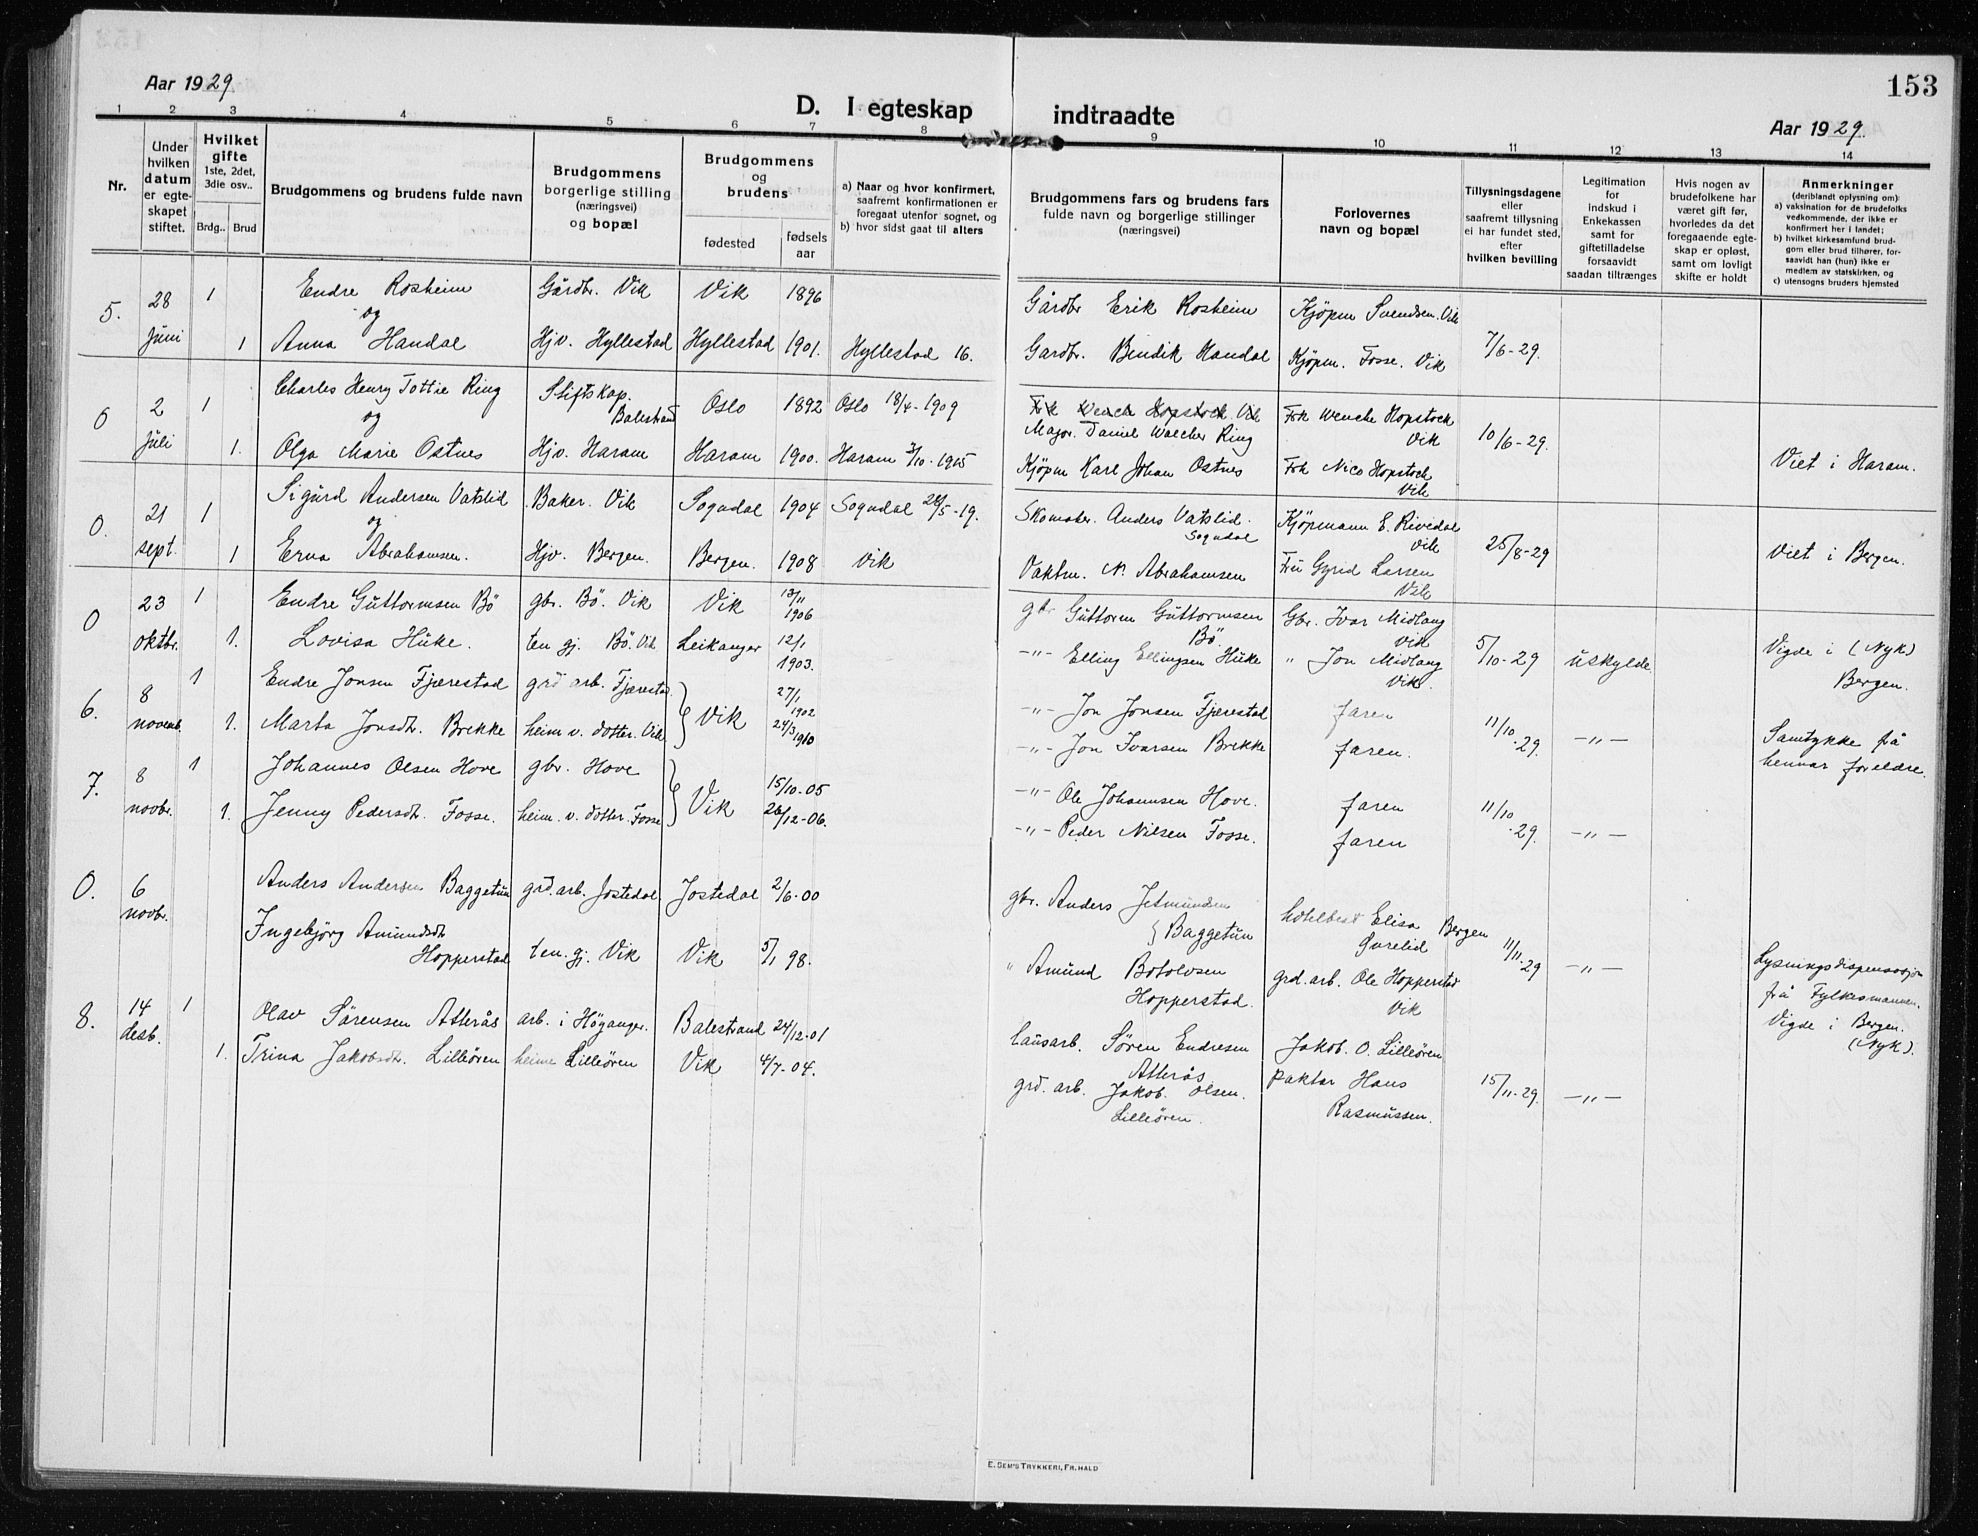 153
Aar 1929
D. I egteskap indtraadte
Aar 1929.
1 2 3 4 5 6 7 8 9 10 11 12 13 14
Nr.
Under hvilken datum er egteskapet stiftet.
Hvilket gifte 1ste, 2det, 3die osv..
Brdg.. Brud
Brudgommens og brudens fulde navn
Brudgommens borgerlige stilling (næringsvei) og bopæl
Brudgommens og brudens
fødested
fødsels aar
a) Naar og hvor konfirmert, saafremt konfirmationen er foregaat utenfor sognet, og
b) hvor sidst gaat til alters
Brudgommens fars og brudens fars fulde navn og borgerlige stillinger (næringsvei)
Forlovernes navn og bopæl
Tillysningsdagene eller saafremt tillysning ei har fundet sted, efter hvilken bevilling
Legitimation for indskud i Enkekassen samt for giftetilladelse forsaavidt saadan tiltrænges
Hvis nogen av brudefolkene har været gift før, hvorledes da det foregaaende egteskap er opløst, samt om lovligt skifte er holdt
Anmerkninger (deriblandt oplysning om:
a) vaksination for de brudefolks vedkommende, der ikke er konfirmert her i landet;
b) hvilket kirkesamfund brudgom eller brud tilhører, forsaavidt han (hun) ikke er medlem av statskirken, og
c) utensogns bruders hjemsted
5. 28 Juni 1 Endre Rosheim Gårdbr. Vik Vik 1896 Gårdbr Erik Rosheim Kjöpm Svendsen. Vik
og
1 Anna Handal Hjv. Hyllestad Hyllestad 1901. Hyllestad 16. Gardbr. Bendik Handal Kjöpm. Fosse. Vik 7/6-29.
0 2 Juli 1 Charles Henry Tottie Ring Stiftskap. Balestrand Oslo 1892 Oslo 18/4-1909 Frk Wenche Hopstock Vik
Major. Daniel Walcher Ring Frk Wenche Hopstock Vik 10/6-29.
og
1. Olga Marie Ostnes Hjv. Haram Haram 1900. Haram 3/10-1915 Kjöpm Karl Johan Ostnes Frk Nico Hopstock Vik Viet i Haram.
0. 21 sept. 1 Sigurd Andersen Vatslid Baker. Vik Sogndal 1904 Sogndal 24/5-19. Skomaker. Anders Vatslid. Sogndal Kjöpmann E. Rivedal Vik
og
1 Erna Abrahamsen. Hjv. Bergen. Bergen. 1908 Vik Vaktm. N. Abrahamsen Fru Gyrid Larsen Vik 25/8-29 Viet i Bergen.
0 23 oktbr. 1 Endre Guttormsen Bö gbr. Bö. Vik Vik 13/11 1906 gbr Guttorm Guttormsen Bö Gbr. Ivar Midlang Vik
1. Lovisa Huke. ten gj. Bö. Vik Leikanger 12/1 1903. -"- Elling Ellingsen Huke " Jon Midlang Vik. 5/10-29 uskylde. Vigde i (Nyk) Bergen.
6. 8 novemb. 1 Endre Jonsen Fjærestad grd arb. Fjærestad. Vik 27/1 1902 -"- Jon Jonsen Fjærestad faren
1. Marta Jonsdtr. Brekke heim v. dotter. Vik 24/3 1910 -"- Jon Ivarsen Brekke faren. 11/10-29. -"- Samtykke frå hennar foreldre.
7. 8 novbr. 1 Johannes Olsen Hove gbr. Hove Vik 15/10-05 -"- Ole Johannsen Hove. faren
1. Jenny Pedersdtr. Fosse. heim. v. dotter. Fosse 26/12-06. -"- Peder Nilsen Fosse. faren 11/10-29. -"-
0. 6 novbr. Anders Andersen Baggetun grd. arb. Jostedal Jostedal 2/6-00 gbr. Anders Jetmundsen Baggetun hotelbest Elisa Övrelid Bergen
Ingebjörg Amundsdtr Hopperstad ten. gj. Vik Vik 5/1 98. " Amund Botolvsen Hopperstad. grd. arb. Ole Hopperstad Vik 11/11-29 -"- Lysningsdispensasjon frå Fylkesmannen. Vigde i Bergen. (Nyk).
8. 14 desb. 1 Olav Sörensen Atterås arb. i Höyanger. Balestrand 24/12-01 lausarb. Sören Endresen Atterås Jakob. O. Lilleören
1. Trina Jakobsdtr. Lilleören heime Lilleören Vik 4/7-04. grd. arb. Jakob. Olsen. Lilleören. paktar Hans Rasmussen. 15/11-29. -"-
E. SEM'S TRYKKERI, FR.HALD